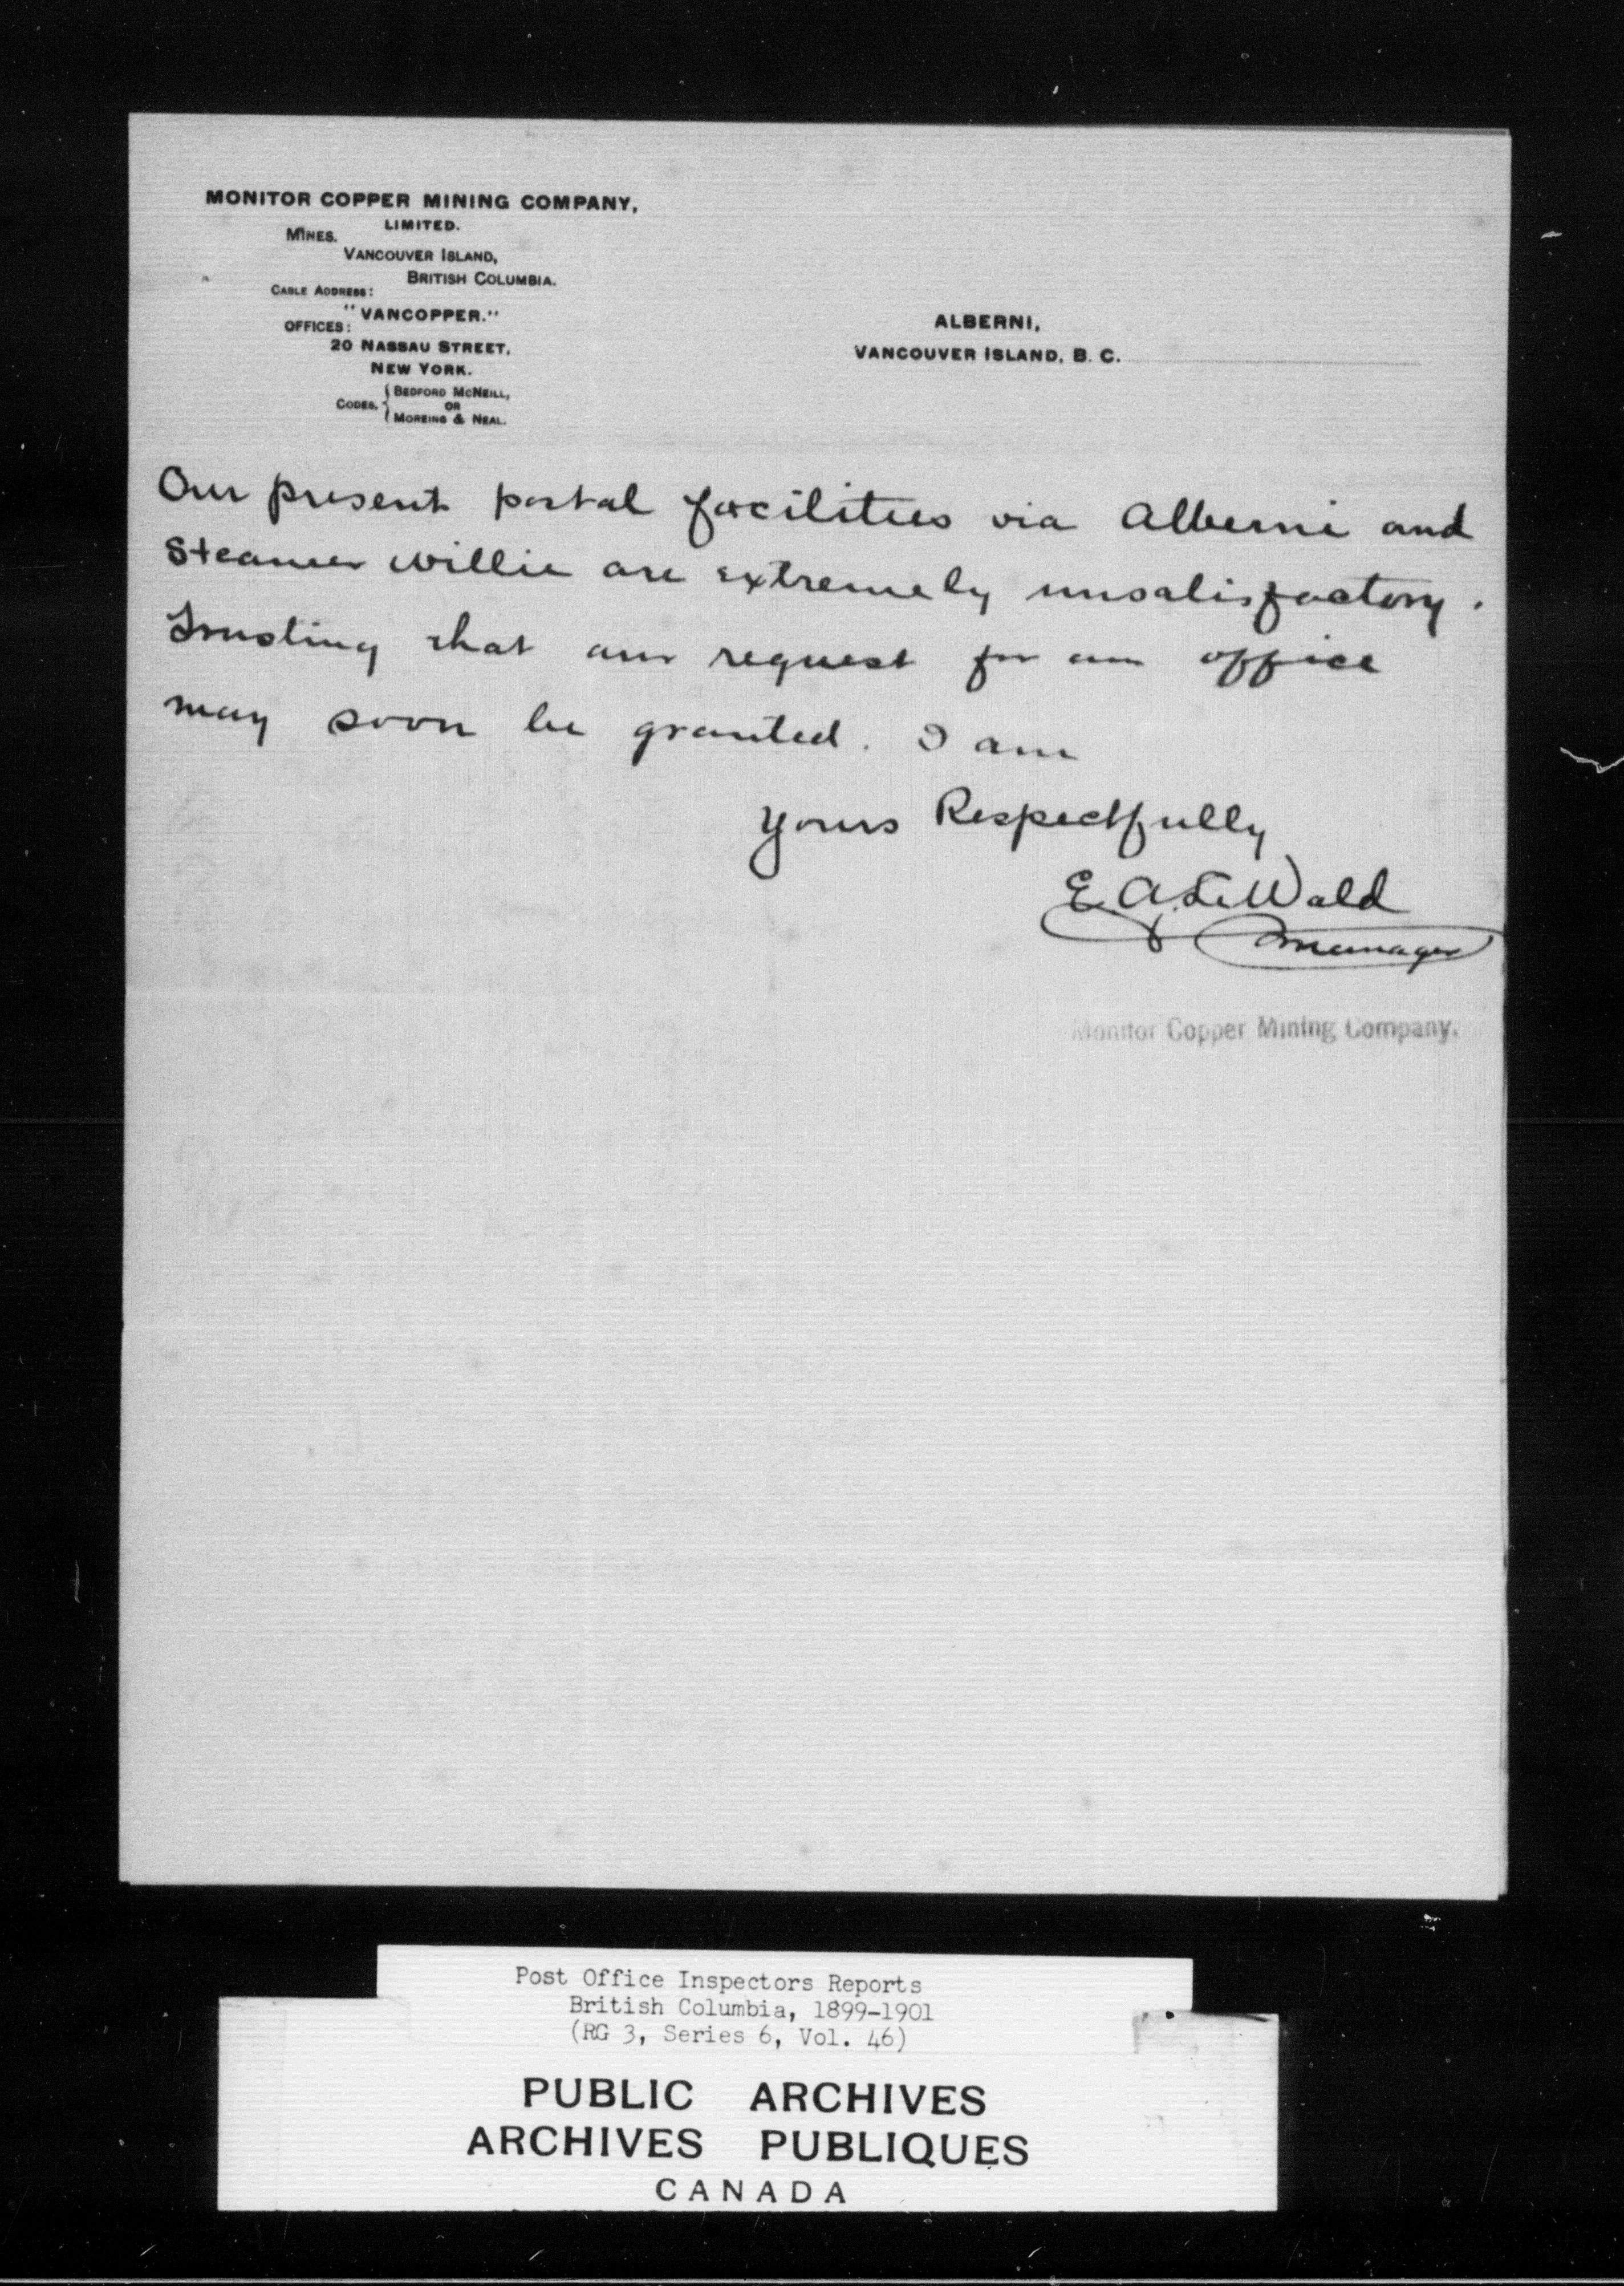 MONITOR COPPER MINING COMPANY,
LIMITED.
MINES.
VANCOUVER ISLAND,
BRITISH COLUMBIA.
CABLE ADDRESS:
"VANCOPPER."
OFFICES:
20 NASSAU STREET,
NEW YORK.
CODES. { BEDFORD MCNEILL,
OR
MOREING & NEAL.
ALBERNI,
VANCOUVER ISLAND, B. C.
Our present postal facilities via Alberni and
Steamer Willie are extremely unsatisfactory.
Trusting that our request for an office
may soon be granted. I am
Yours Respectfully
E. A. LeWald
Manager
Monitor Copper Mining Company.
Post Office Inspectors Reports
British Columbia, 1899-1901
(RG 3, Series 6, Vol. 46)
PUBLIC ARCHIVES
ARCHIVES PUBLIQUES
CANADA